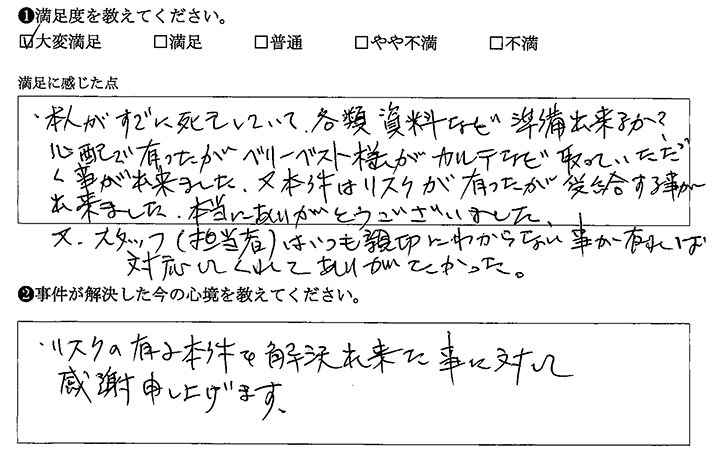 ❶満足度を教えてください。
☑大変満足 □満足 □普通 □やや不満 □不満
満足に感じた点
・本人がすでに死亡していて、各類資料など準備出来るか?
心配で有ったがベリーベスト様がカルテなど取っていただ
く事が出来ました、又本件はリスクが有ったが受給する事が
出来ました、本当にありがとうございました、
又、スタッフ(担当者)はいつも親切にわからない事が有れば
対応してくれてありがたかった。
❷事件が解決した今の心境を教えてください。
・リスクの有る本件を解決出来た事に対して
感謝申し上げます、